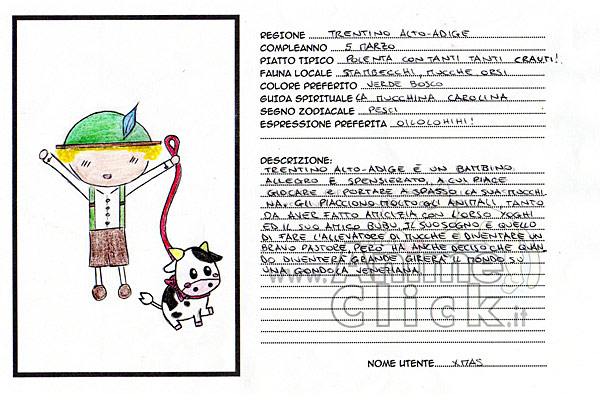 REGIONE TRENTINO ALTO-ADIGE
COMPLEANNO 5 MARZO
PIATTO TIPICO POLENTA CON TANTI TANTI CRAUTI!
FAUNA LOCALE STAMBECCHI, MUCCHE, ORSI
COLORE PREFERITO VERDE BOSCO
GUIDA SPIRITUALE LA MUCCHINA CAROLINA
SEGNO ZODIACALE PESCI
ESPRESSIONE PREFERITA OILOLOHIHI!
DESCRIZIONE:
TRENTINO ALTO-ADIGE È UN BAMBINO
ALLEGRO E SPENSIERATO, A CUI PIACE
GIOCARE E PORTARE A SPASSO LA SUA MUCCHI
NA. GLI PIACCIONO MOLTO GLI ANIMALI, TANTO
DA AVER FATTO AMICIZIA CON L'ORSO YOGHI
ED IL SUO AMICO BUBU. IL SUO SOGNO È QUELLO
DI FARE L'ALLEVATORE DI MUCCHE E DIVENTARE UN
BRAVO PASTORE, PERÒ HA ANCHE DECISO CHE QUAN
DO DIVENTERÀ GRANDE GIRERÀ IL MONDO SU
UNA GONDOLA VENEZIANA.
www.Anime
Click.it
NOME UTENTE XMAS